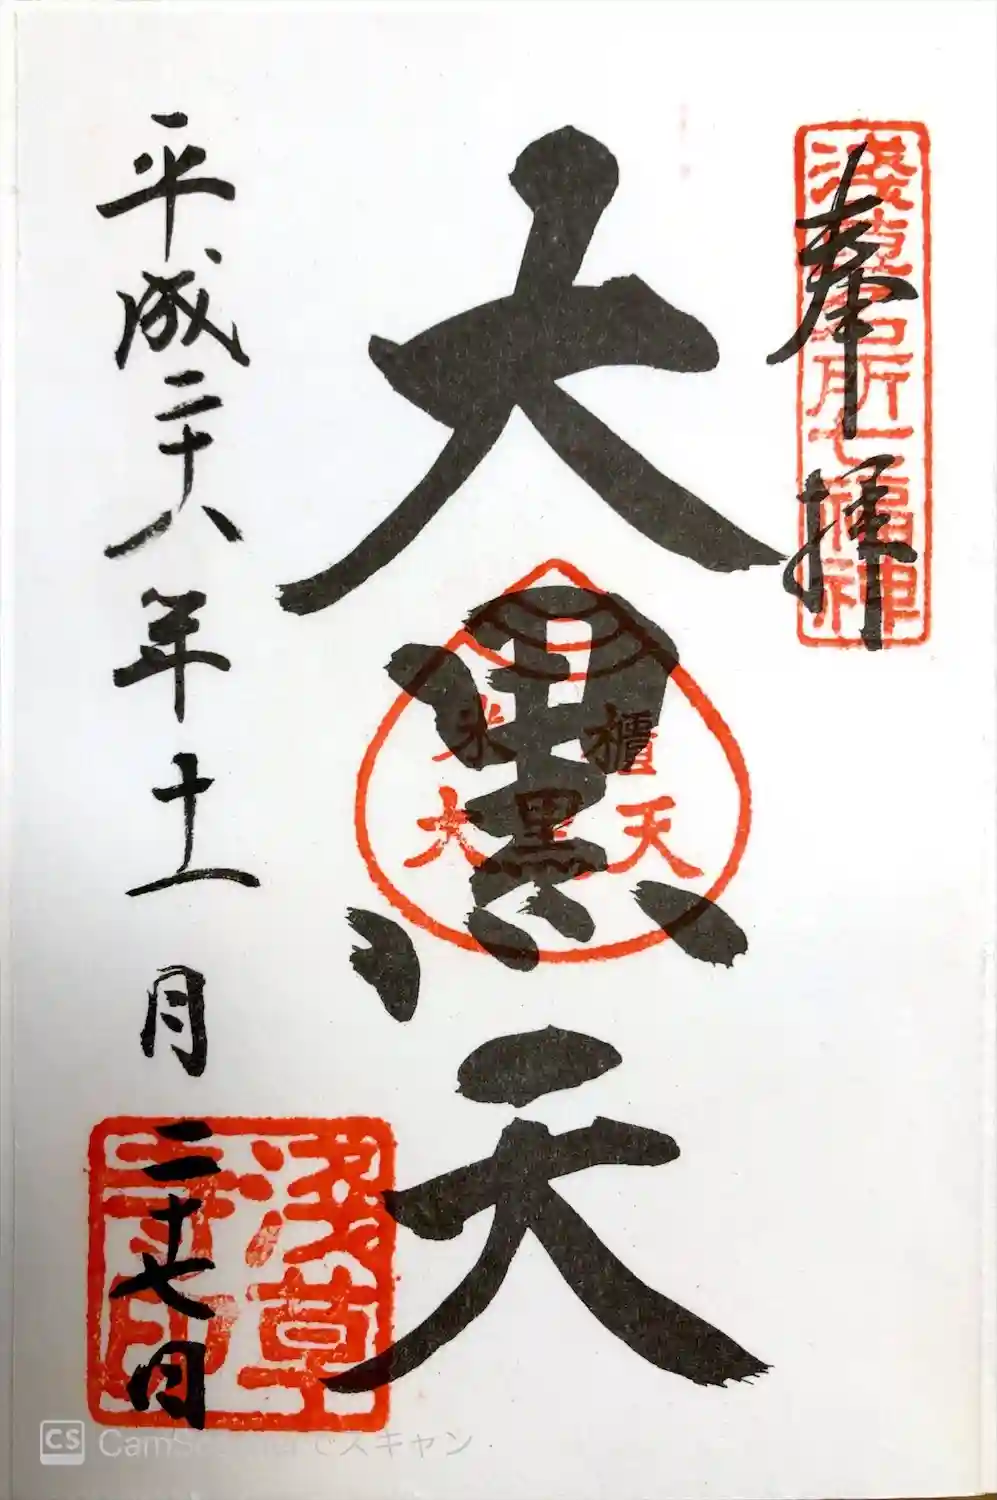 奉拝
淺草名所七福神
大黒天
米櫃
大黒天
平成二十八年十一月二十七日
淺草
寺印
CS CamScannerでスキャン